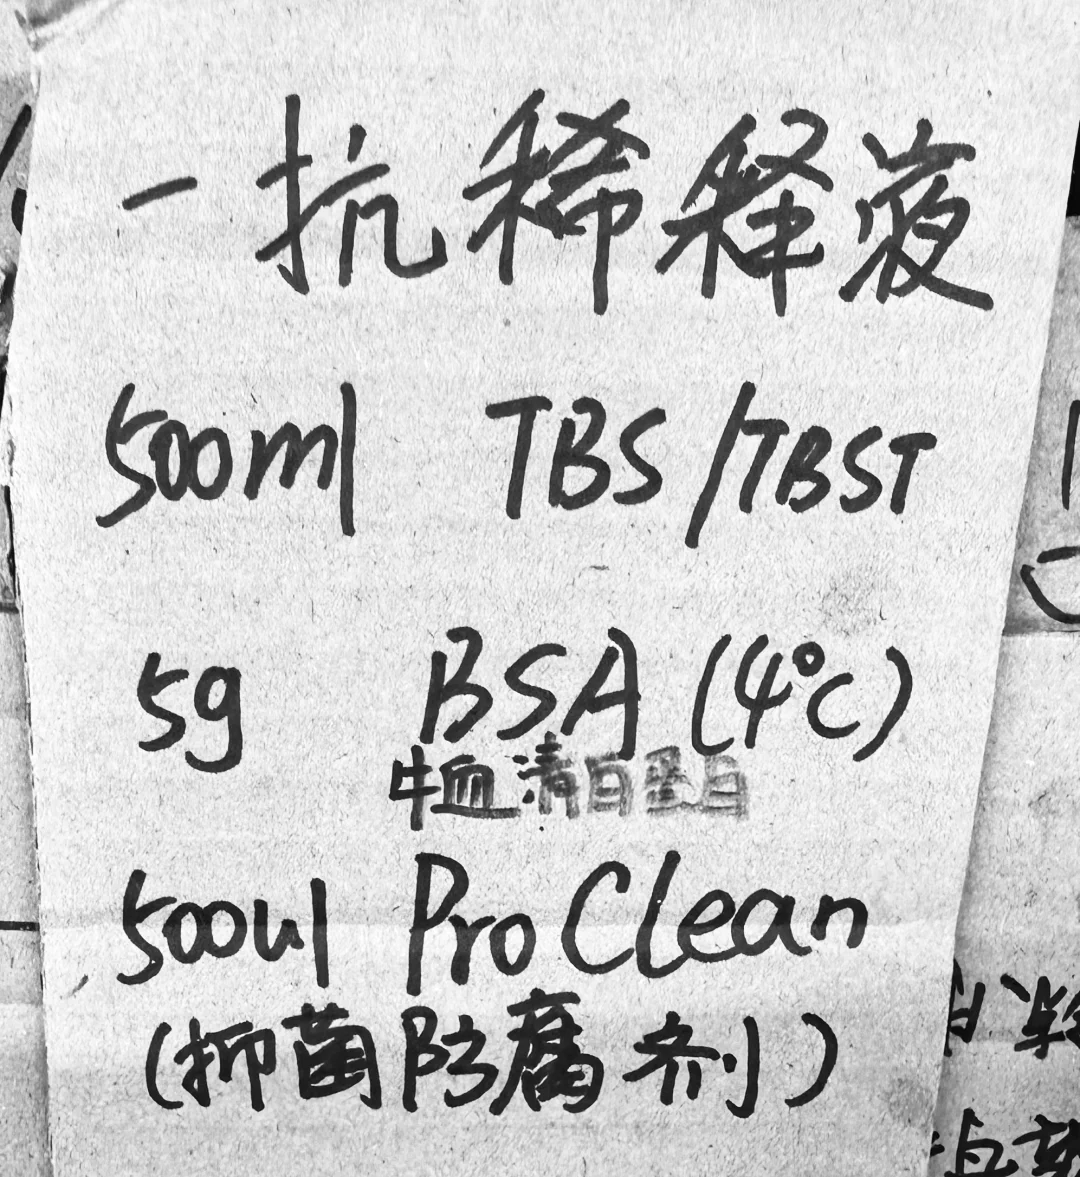 一抗稀释液
500ml TBS/TBST
5g BSA (4℃)
牛血清白蛋白
500ul ProClean
(抑菌防腐剂)